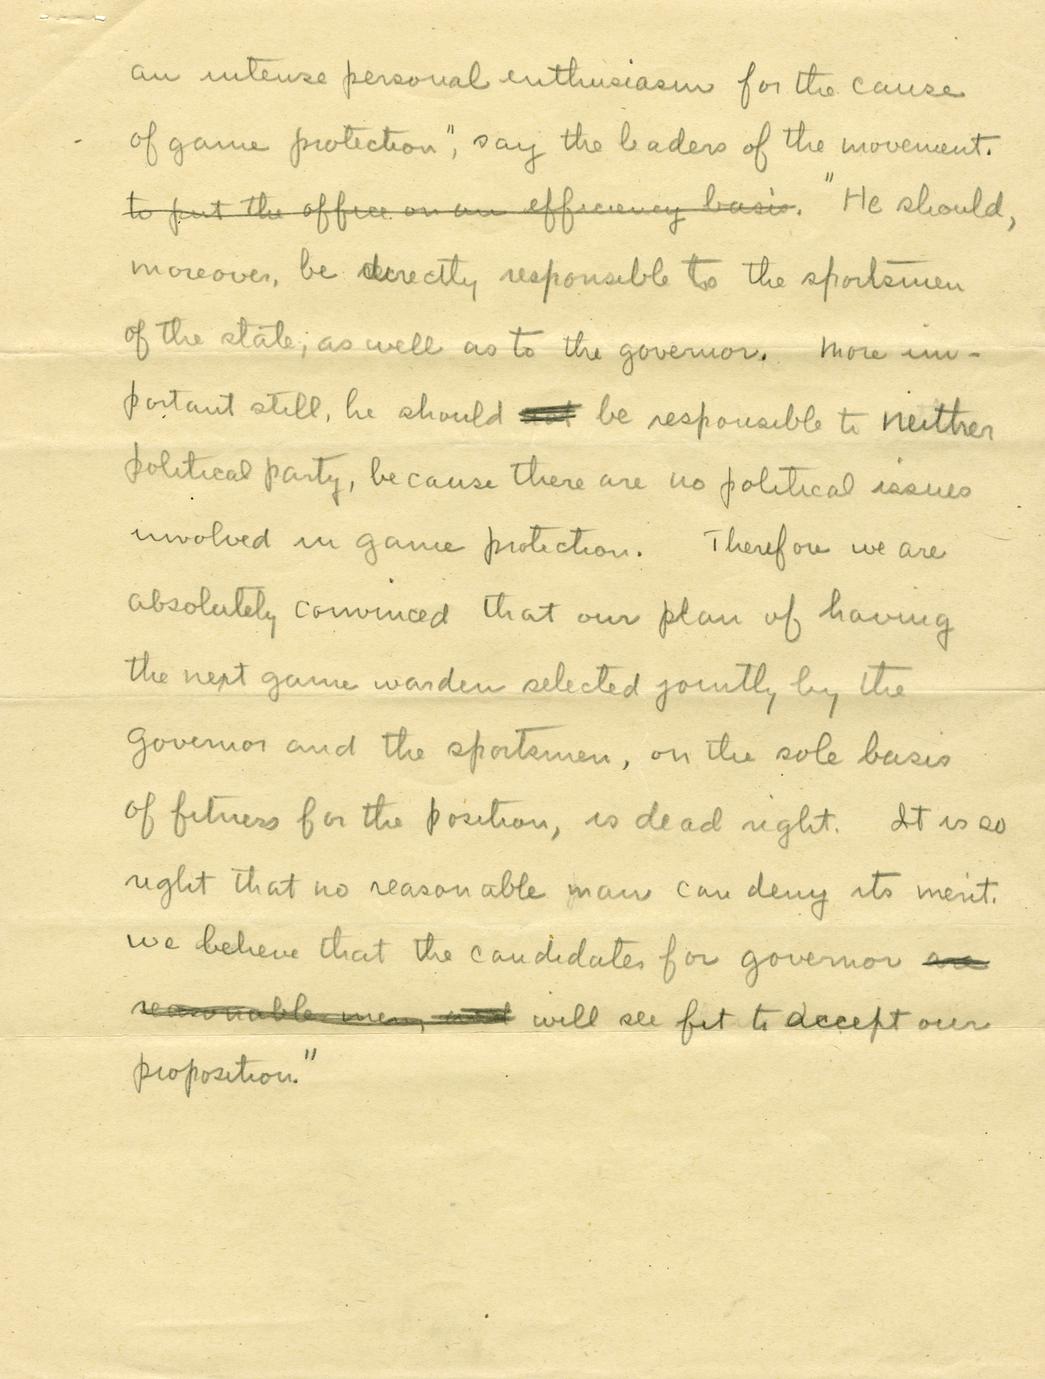 an intense personal enthusiasm for the cause
of game protection", say the leaders of the movement.
to put the office on an efficiency basis. "He should,
moreover, be directly responsible to the sportsmen
of the state, as well as to the governor. More im-
portant still, he should not be responsible to neither
political party, because there are no political issues
involved in game protection. Therefore we are
absolutely convinced that our plan of having
the next game warden selected jointly by the
governor and the sportsmen, on the sole basis
of fitness for the position, is dead right. It is so
right that no reasonable man can deny its merit.
We believe that the candidates for governor are
reasonable men, and will see fit to accept our
proposition."